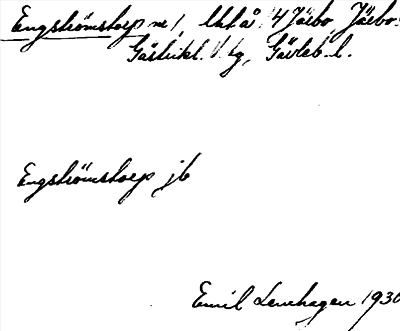 Engströmstorp nr 1, Utt å 14 Järbo Järbo
Gästrikl. V. tg, Gävleb. l.
Engströmstorp jb
Emil Lenhagen 1930